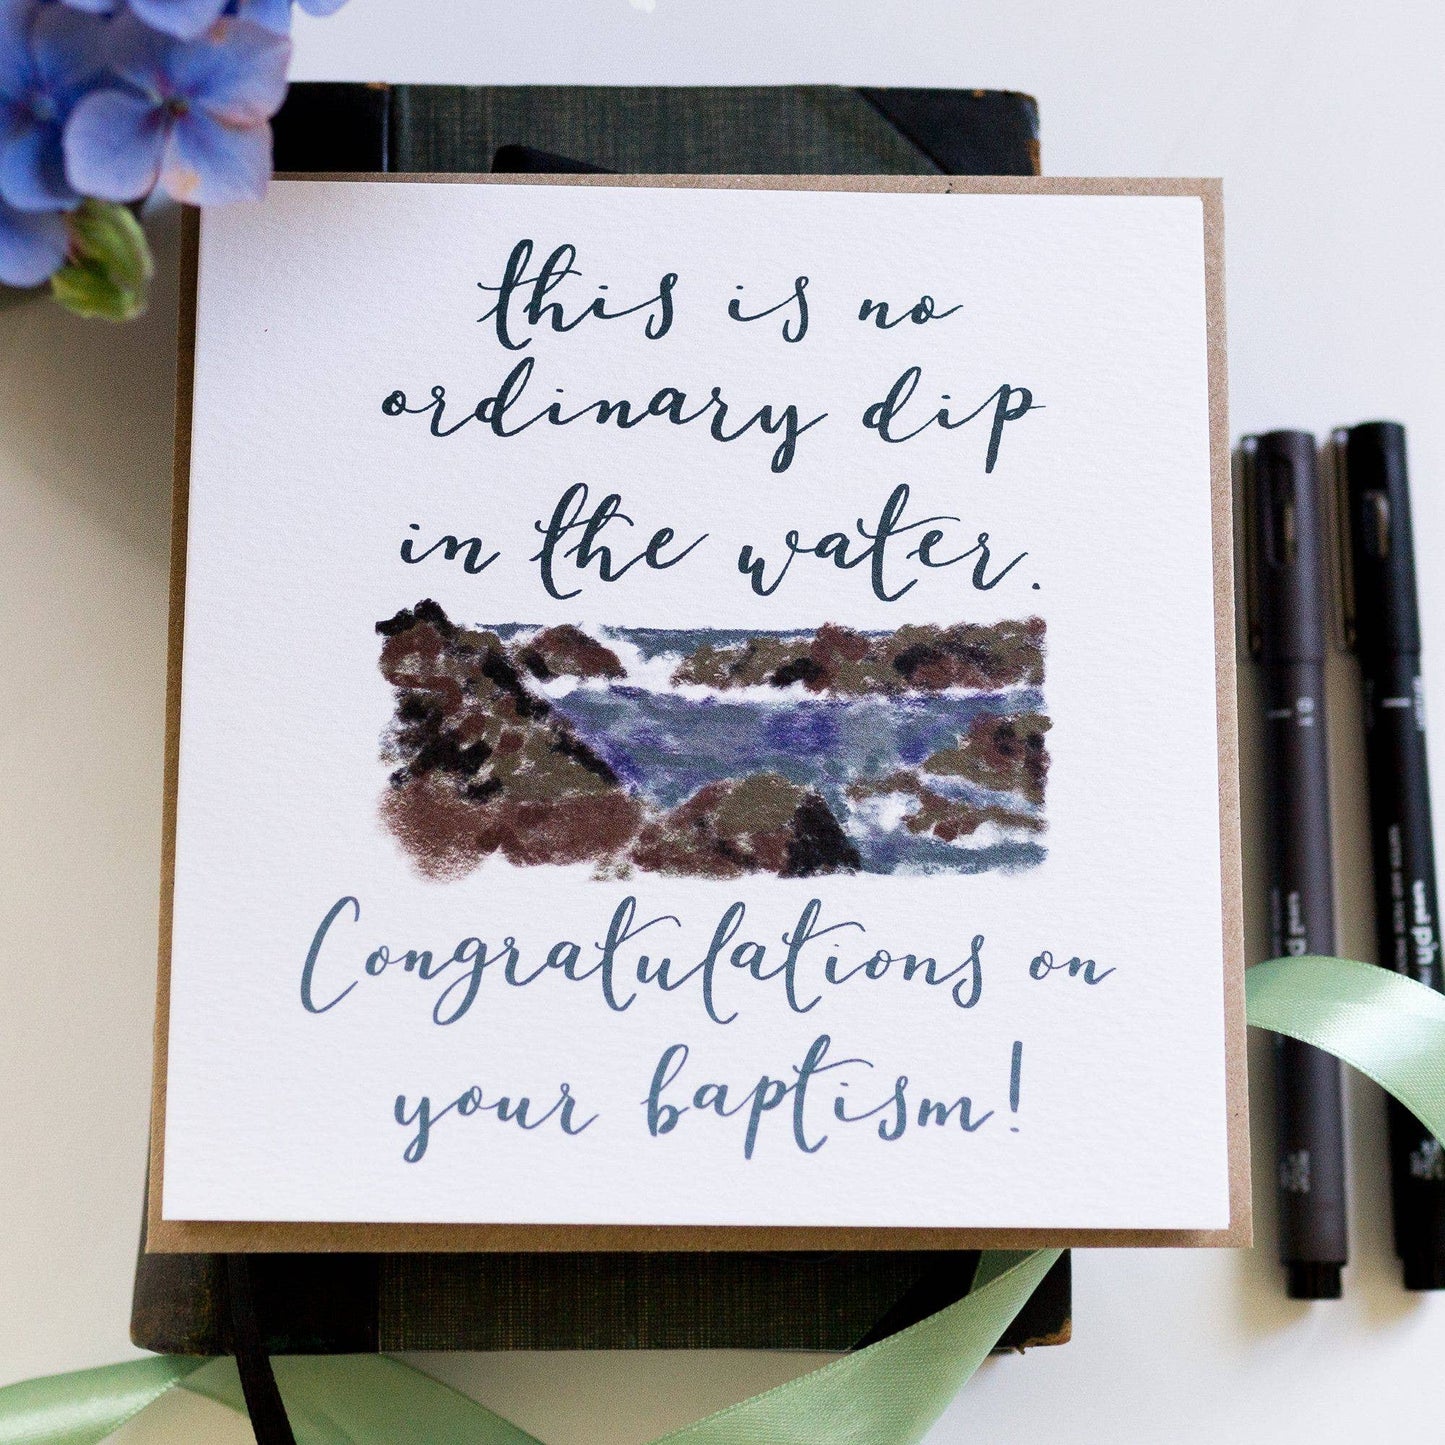 this is no
ordinary dip
in the water.
Congratulations on
your baptism!
uni pin
uni pin